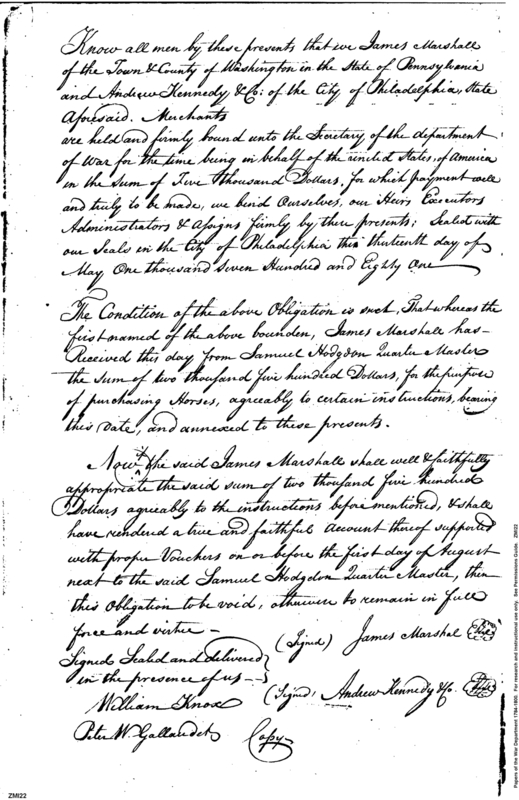 Know all men by these presents that we James Marshall
of the Town & County of Washington in the State of Pennsylvania
and Andrew Kennedy & Co: of the City of Philadelphia, State
Aforesaid. Merchants
are held and firmly bound unto the Secretary of the department
of War for the time being in behalf of the united States, of America
in the Sum of Five thousand Dollars, for which payment well
and truly to be made, we bend Ourselves, our Heirs Executors
Administrators & Assigns firmly by these presents; Sealed with
our Seals in the City of Philadelphia this thirteenth day of
May One thousand Seven Hundred and Eighty One
The Condition of the above Obligation is such, That whereas the
first named of the above bounden, James Marshall has
Received this day from Samuel Hodgdon Quarter Master
the sum of two thousand five hundred Dollars, for the purpose
of purchasing Horses, agreeably to certain instructions, bearing
this Date, and annexed to these presents.
Now if the said James Marshall shall well & faithfully
appropriate the said sum of two thousand five hundred
Dollars agreeably to the instructions before mentioned, & shall
have rendered a true and faithful Account thereof supported
with proper Vouchers on or before the first day of August
next to the said Samuel Hodgdon Quarter Master, then
this Obligation to be void, otherwise to remain in full
force and virtue –
(Signed) James Marshal
Signed Sealed and delivered
in the presence of us --
(Signed) Andrew Kennedy & Co.
William Knox
Peter W. Gallaudet Copy
ZMI22
Papers of the War Department 1784-1800. For research and instructional use only. See Permissions Guide. ZMI22